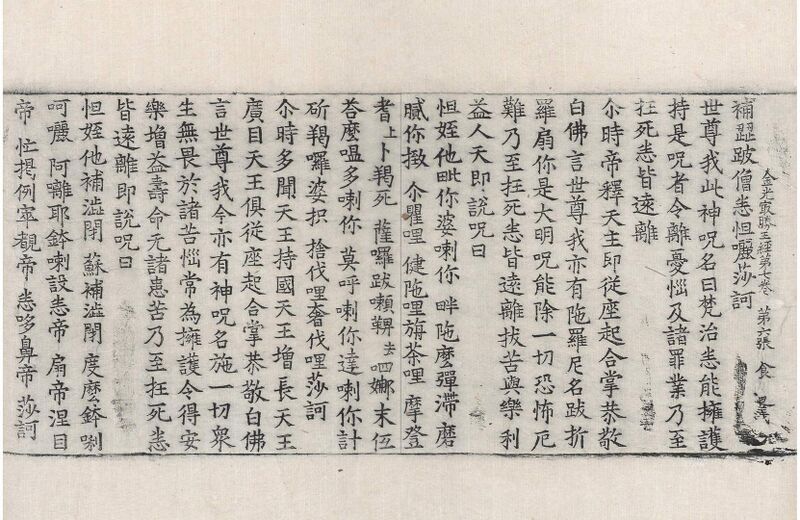 補澀跛僧悉怛囇莎訶
金光最勝王經第七卷 第六張 食
世尊我此神呪名曰梵治悉能擁護
持是呪者令離憂惱及諸罪業乃至
抂死悉皆遠離
尒時帝釋天主即從座起合掌恭敬
白佛言世尊我亦有陁羅尼名跋折
羅扇你是大明呪能除一切恐怖厄
難乃至抂死悉皆遠離拔苦與樂利
益人天即說呪曰
怛姪他毗你婆喇你 畔陁麽彈滯磨
膩你㨖 尒瞿哩 健陁哩旃荼哩 摩登
耆上卜羯死 薩羅跋頼鞞去呬娜末伍
荅麽嗢多喇你 莫呼喇你達喇你計
斫羯囉婆抧 捨伐哩奢伐哩莎訶
尒時多聞天王持國天王增長天王
廣目天王俱從座起合掌恭敬白佛
言世尊我今亦有神呪名施一切衆
生無畏於諸苦惱常為擁護令得安
樂增益壽命无諸患苦乃至抂死悉
皆遠離即說呪曰
怛姪他補澁閇 蘇補澁閇 度麽鉢喇
呵囇 阿囄耶鉢喇設悉帝 扇帝涅目
帝 忙揭例窣覩帝 悉哆鼻帝 莎訶